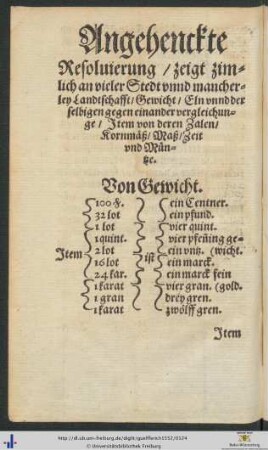 Angehenckte
Resoluierung / zeigt zim-
lich an vieler Stedt vnnd mancher-
ley Landtschafft / Gewicht / Eln vnnd der
selbigen gegen einander vergleichun-
ge / Item von deren Zalen /
Kornmäß / Maß / Zeit
vnd Mün-
tze.
Von Gewicht.
100 ℔. ein Centner.
32 lot ein pfund.
1 lot vier quint.
1 quint. vier pfeñing ge-
Item 2 lot ist ein vntz. (wicht.
16 lot ein marck.
24 kar. ein marck fein
1 karat vier gran. (gold.
1 gran drey gren.
1 karat zwölff gren.
Item
http://dl.ub.uni-freiburg.de/diglit/quellfleisch1552/0124
© Universitätsbibliothek Freiburg